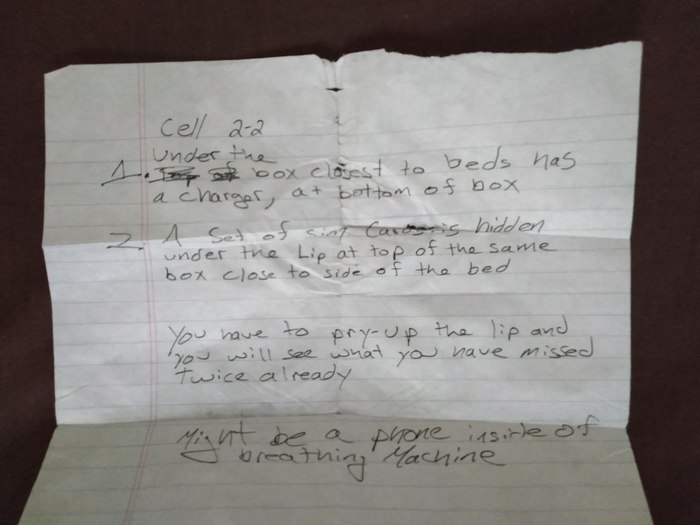 Cell 2-2
Under the
1. box closest to beds has
a charger, at bottom of box
2. A Set of sim Cards is hidden
under the Lip at top of the same
box close to side of the bed
You have to pry-up the lip and
you will see what you have missed
Twice already
Might be a phone inside of
breathing Machine